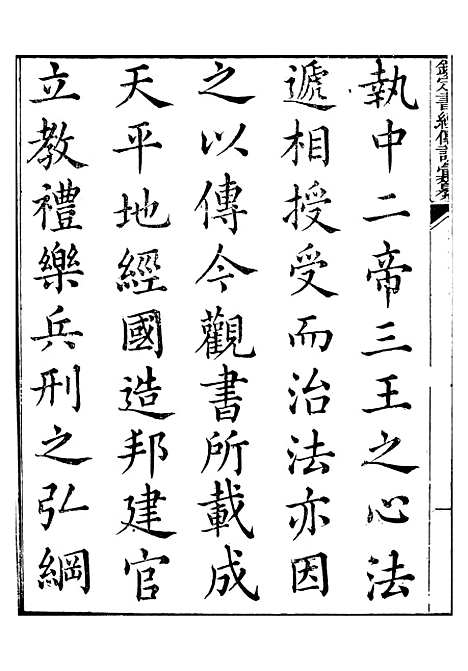 欽定書經傳說彙纂
執中二帝三王之心法
遞相授受而治法亦因
之以傳今觀書所載成
天平地經國造邦建官
立教禮樂兵刑之弘綱